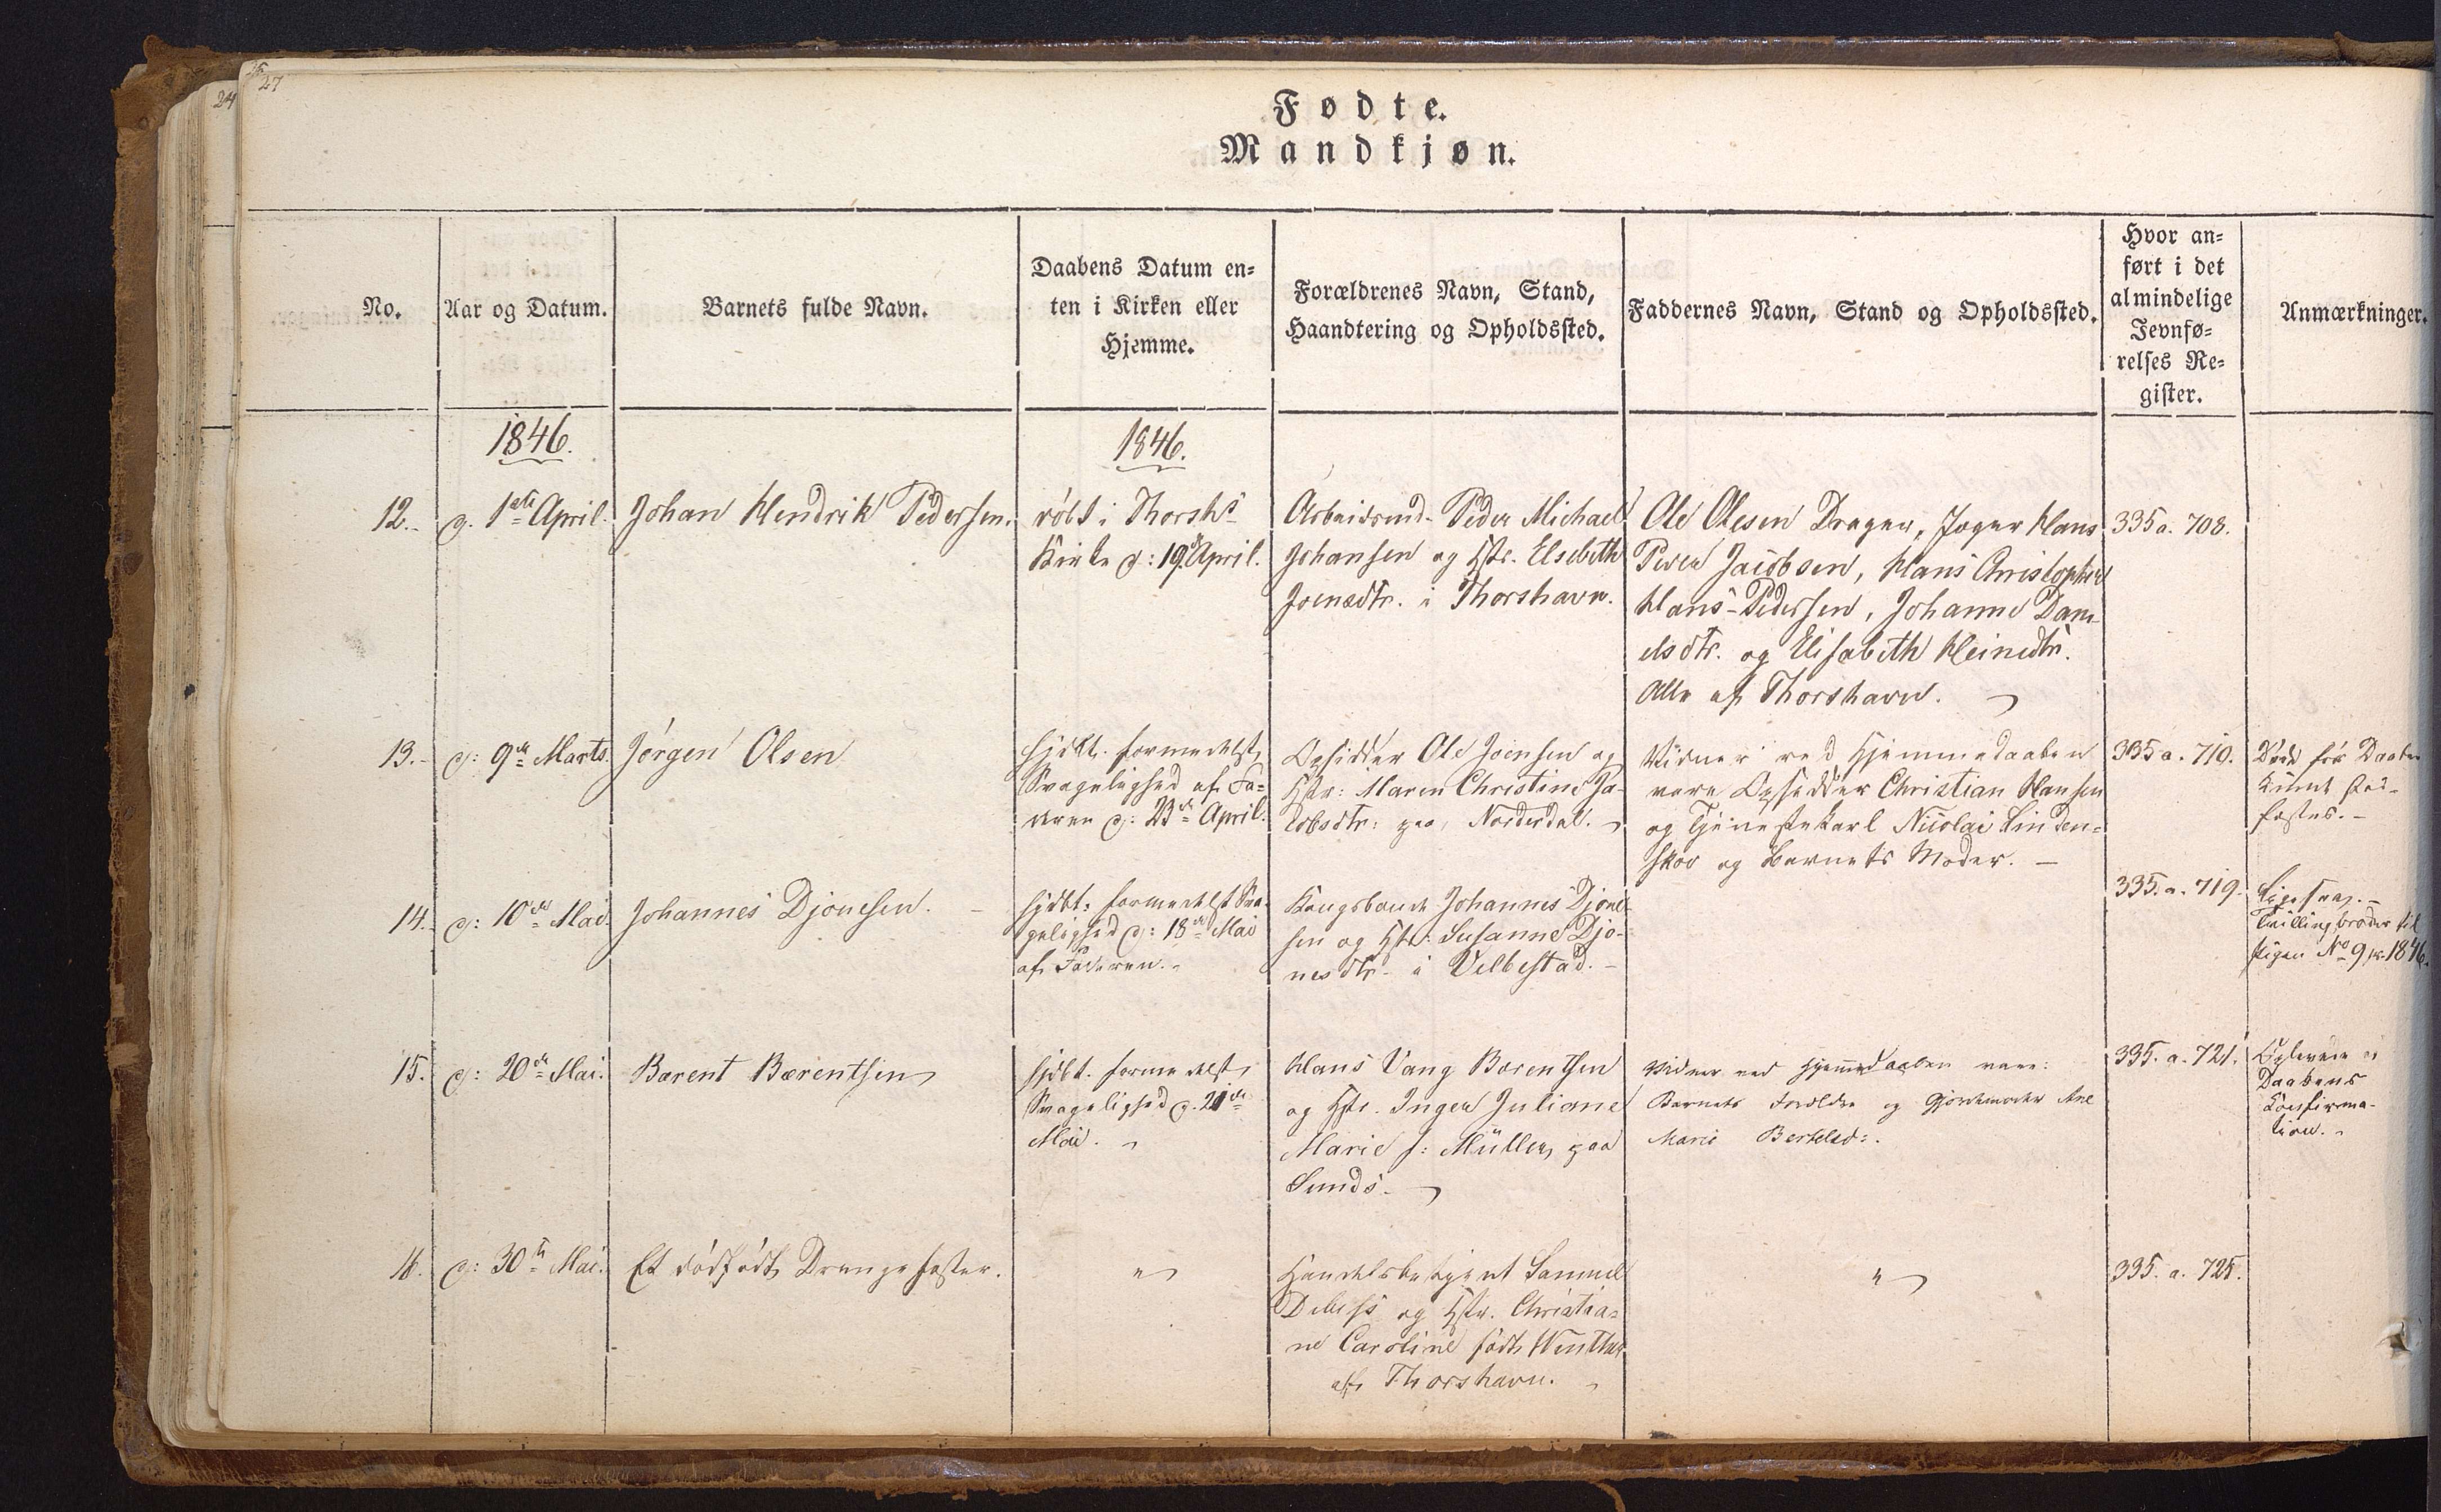 27
24
Fødte.
Mandkjøn.
No.
Aar og Datum.
Barnets fulde Navn.
Daabens Datum en-
ten i Kirken eller
Hjemme.
Forældrenes Navn, Stand,
Haandtering og Opholdssted.
Faddernes Navn, Stand og Opholdssted.
Hvor an-
ført i det
almindelige
Jevnfø-
relses Re-
gister.
Anmærkninger.
1846.
1846.
12.
d. 1ste April.
Johan Hendrik Pedersen.
døbt i Thorsh's
Kirke d: 19de April.
Arbeidsmd. Peder Michael
Johansen og Hstr. Elsebeth
Joensdtr. i Thorshavn.
Ole Olesen Drager, Jæger Hans
Peder Jacobsen, Hans Christopher
Hans-Pedersen, Johanne Dani-
elsdtr. og Elisabeth Heinedtr.
Alle af Thorshavn.
335 a. 708.
13.
d: 9de Marts.
Jørgen Olsen
hjdbt. formedelst
Svagelighed af Fa-
deren d: 23de April.
Opsidder Ole Joensen og
Hstr: Maren Christine Ja-
cobsdtr. paa Norderdal.
Vidner ved Hjemmedaaben
vare Opsidder Christian Hansen
og Tjenestekarl Nicolai Linden-
skov og Barnets Moder.
335 a. 710.
Død før Daaben
kunde stad-
fæstes.
14.
d: 10de Mai.
Johannes Djonesen.
hjdbt: formedelst Sva-
gelighed d: 18de Mai
af Faderen.
Kongsbonde Johannes Djone-
sen og Hstr: Susanne Djo-
nesdtr. i Velbestad.
335. a. 719.
Ligesaa.
Tvillingbroder til
Pigen No 9 pr. 1846.
15.
d: 20de Mai.
Barent Bærentsen
hjdbt. formedelst
Svagelighed d. 21de
Mai.
Hans Vang Bærentsen
og Hstr. Inger Juliane
Marie f: Müller, paa
Sunds.
Vidner ved Hjemmedaaben vare:
Barnets Forældre og Gjordemoder Ane
Marie Bertelsd:.
335. a. 721.
Oplevede ei
Daabens
Confirma-
tion.
16.
d: 30te Mai.
Et dødfødt Drengefoster.
"
Handelsbetjent Samuel
Debess og Hstr. Christia-
ne Caroline født Winther
af Thorshavn.
"
335. a. 725.